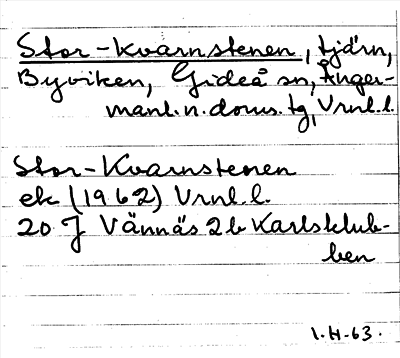 Stor-Kvarnstenen, tjärn,
Byviken, Gideå sn, Ånger-
manl. n. doms. tg, Vrnl. l.
Stor-Kvarnstenen
ek (1962) Vrnl. l.
20 J Vännäs 2b Karlsklub-
ben
I.H-63.